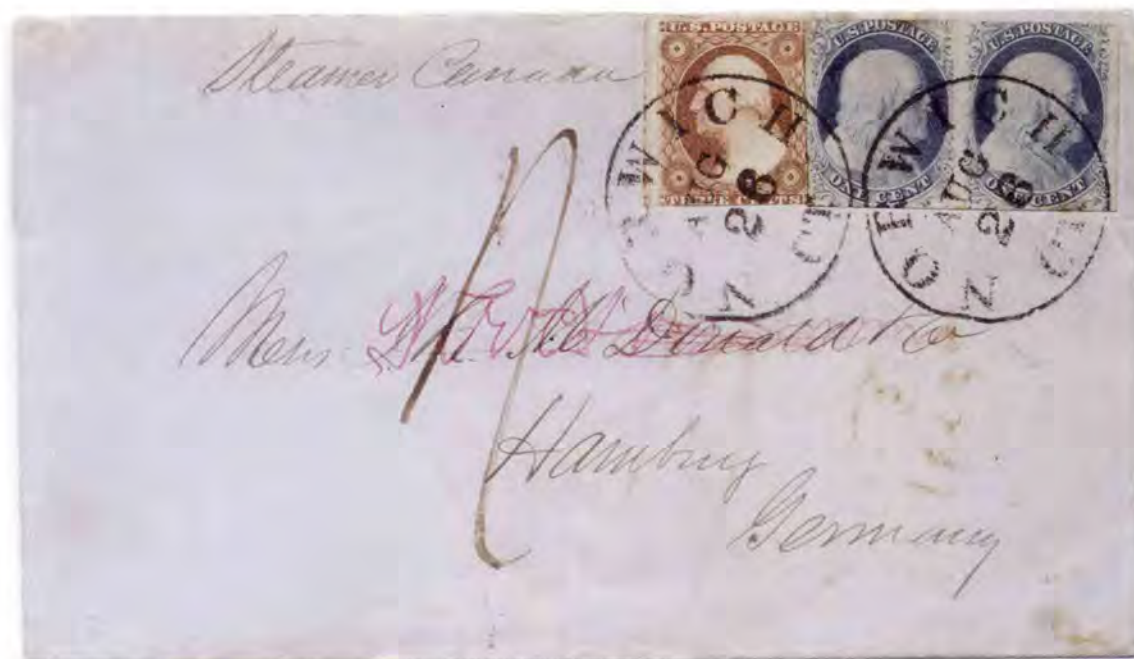 Steamer Canada
U.S.POSTAGE
THREE CENTS
U.S. POSTAGE
ONE CENT
U.S. POSTAGE
ONE CENT
NORWICH
AUG
26
CT
NORWICH
AUG
26
CT
Mess Donald & Co
Hamburg
Germany